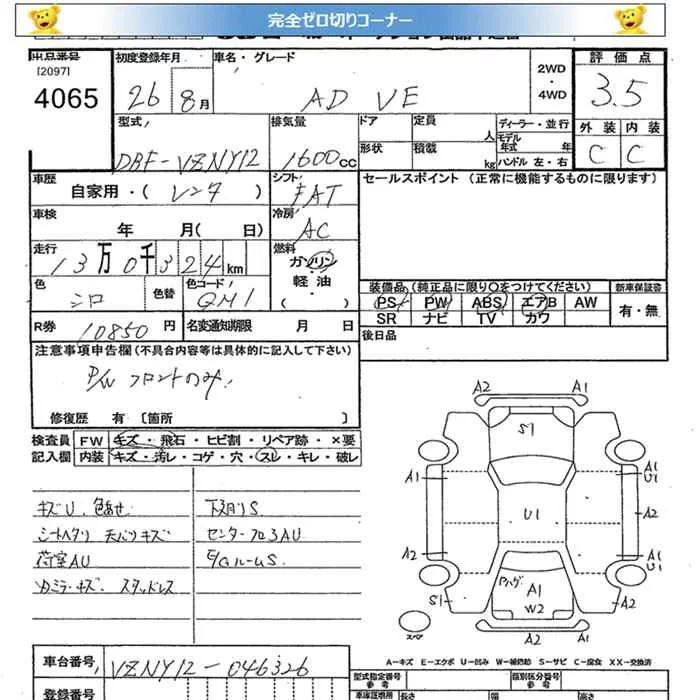 完全ゼロ切りコーナー
出品番号 初度登録年月 車名・グレード 2WD・4WD 評価点
[2097]
4065 26年 8月 AD VE 3.5
型式 排気量 ドア 定員 人 ディーラー・並行 モデル年式 年 外装 内装
DBF-VZNY12 1600cc 形状 積載 kg ハンドル 左・右 C C
車歴 シフト セールスポイント (正常に機能するものに限ります)
自家用・( レンタ ) FAT
車検 冷房
年 月( 日) AC
走行 燃料
13万0千324km ガソリン・軽油・( )
色 シロ 色替 色コード QM1
装備品(純正品に限り○をつけてください) 新車保証書
PS PW ABS エアB AW 有・無
SR ナビ TV カワ
R券 10850円 名変通知期限 月 日
後日品
注意事項申告欄(不具合内容等は具体的に記入して下さい)
P/W フロントのみ
修復歴 有 [箇所 ]
検査員 FW キズ・飛石・ヒビ割・リペア跡・×要
記入欄 内装 キズ・汚レ・コゲ・穴・スレ・キレ・破レ
キズU 色あせ
シートヘタリ 天バリキズ
荷室AU
スタッドレス
下廻りS
センターフロアAU
E/GルームS
A2 A1
S1
A1 A1 U1
U1 A2
A2 A1 U1
ハゲ A1
S1 W2 A2
スペア A2 A1
A-キズ E-エクボ U-凹み W-補修跡 S-サビ C-腐食 XX-交換済
車台番号 VZNY12-046326
型式指定番号 類別区分番号
登録番号 長さ 幅 高さ